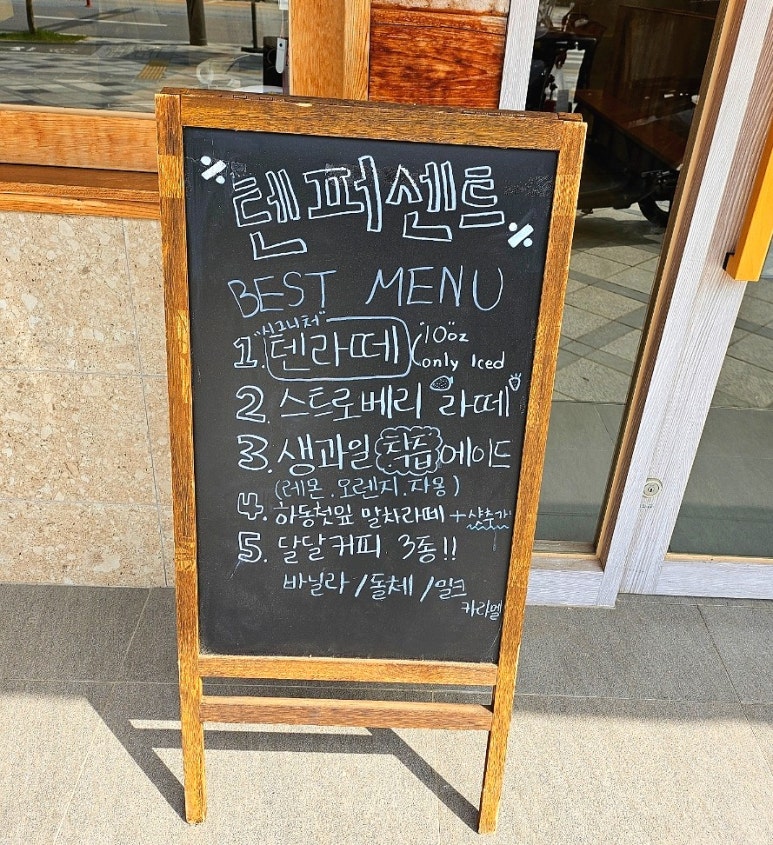 텐퍼센트
BEST MENU
"시그니처"
1. 텐라떼 "10"oz
only Iced
2. 스트로베리 라떼
3. 생과일 착즙 에이드
(레몬.오렌지.자몽)
4. 하동첫잎 말차라떼 + 샷추가
5. 달달커피 3종!!
바닐라/돌체/밀크
카라멜